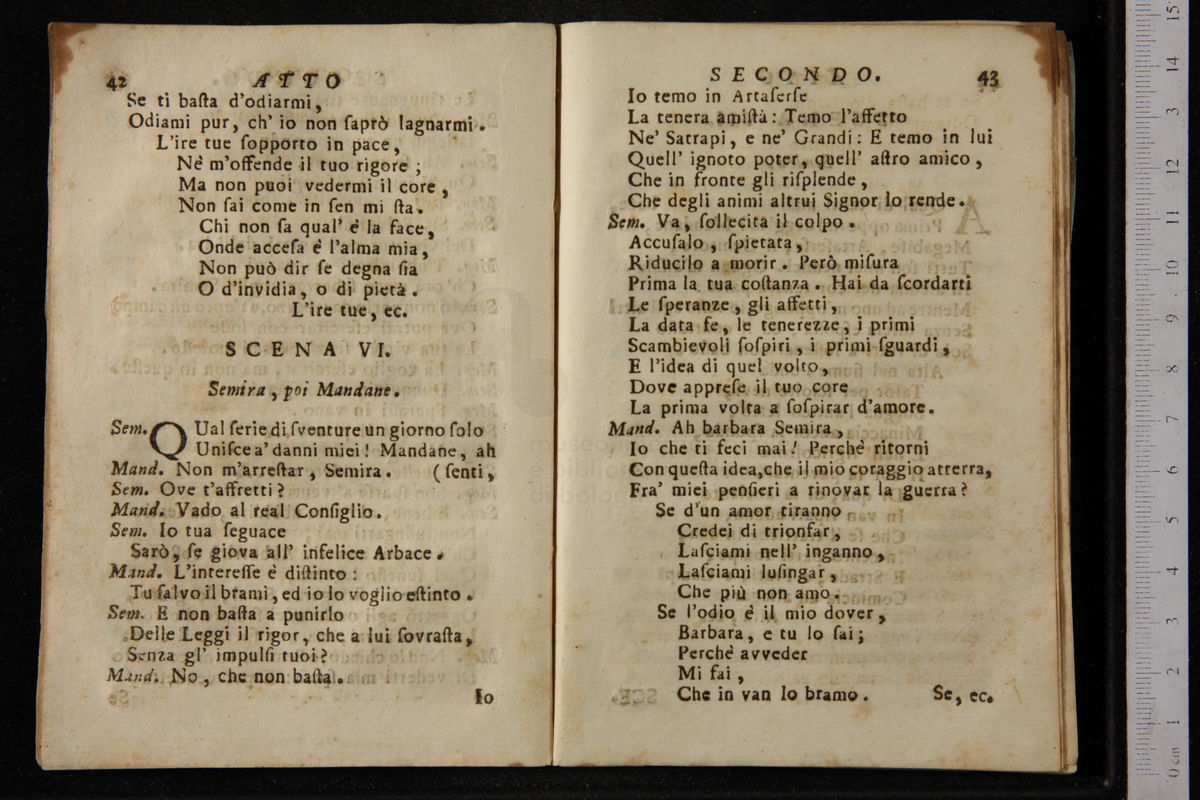 42 ATTO
Se ti baſta d'odiarmi,
Odiami pur, ch' io non ſaprò lagnarmi.
L'ire tue ſopporto in pace,
Nè m'offende il tuo rigore;
Ma non puoi vedermi il core,
Non ſai come in ſen mi ſta.
Chi non ſa qual' è la face,
Onde acceſa è l'alma mia,
Non può dir ſe degna ſia
O d'invidia, o di pietà.
L'ire tue, ec.
SCENA VI.
Semira, poi Mandane.
Sem. QUal ſerie di ſventure un giorno ſolo
Uniſce a' danni miei! Mandane, ah
Mand. Non m'arreſtar, Semira. (ſenti,
Sem. Ove t'affretti?
Mand. Vado al real Conſiglio.
Sem. Io tua ſeguace
Sarò, ſe giova all' infelice Arbace.
Mand. L'intereſſe è diſtinto:
Tu ſalvo il brami, ed io lo voglio eſtinto.
Sem. E non baſta a punirlo
Delle Leggi il rigor, che a lui ſovraſta,
Senza gl' impulſi tuoi?
Mand. No, che non baſta.
Io
SECONDO. 43
Io temo in Artaſerſe
La tenera amiſtà: Temo l'affetto
Ne' Satrapi, e ne' Grandi: E temo in lui
Quell' ignoto poter, quell' aſtro amico,
Che in fronte gli riſplende,
Che degli animi altrui Signor lo rende.
Sem. Va, ſollecita il colpo.
Accuſalo, ſpietata,
Riducilo a morir. Però miſura
Prima la tua coſtanza. Hai da ſcordarti
Le ſperanze, gli affetti,
La data fe, le tenerezze, i primi
Scambievoli ſoſpiri, i primi ſguardi,
E l'idea di quel volto,
Dove appreſe il tuo core
La prima volta a ſoſpirar d'amore.
Mand. Ah barbara Semira,
Io che ti feci mai! Perchè ritorni
Con queſta idea, che il mio coraggio atterra,
Fra' miei penſieri a rinovar la guerra?
Se d'un amor tiranno
Credei di trionfar,
Laſciami nell' inganno,
Laſciami luſingar,
Che più non amo.
Se l'odio è il mio dover,
Barbara, e tu lo ſai;
Perchè avveder
Mi fai,
Che in van lo bramo. Se, ec.